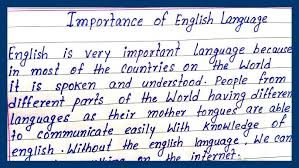 Importance of English Language
English is very important language because
in most of the countries on the World
it is spoken and understood. People from
different parts of the World having different
languages as their mother tongues are able
to communicate easily With knowledge of
english. Without the english language, We can
on the internet.